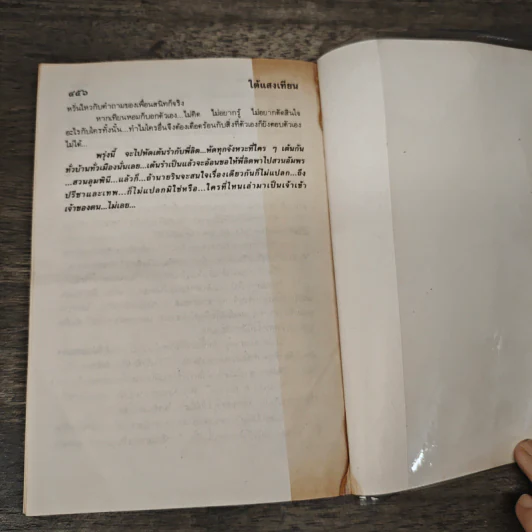 ๔๕๖
ใต้แสงเทียน
หวั่นไหวกับคำถามของเพื่อนสนิทก็จริง
หากเทียนหอมก็บอกตัวเอง...ไม่คิด ไม่อยากรู้ ไม่อยากตัดสินใจ
อะไรกับใครทั้งนั้น...ทำไมใครอื่นจึงต้องเดือดร้อนกับสิ่งที่ตัวเองก็ยังตอบตัวเอง
ไม่ได้...
พรุ่งนี้ จะไปหัดเต้นรำกับพี่ลิต...หัดทุกจังหวะที่ใคร ๆ เต้นกัน
ทั่วบ้านทั่วเมืองนั่นเลย...เต้นรำเป็นแล้วจะอ้อนขอให้พี่ลิตพาไปสวนอัมพร
...สวนลุมพินี...แล้วก็...ถ้านายรินจะสนใจเรื่องเดียวกันก็ไม่แปลก...ถึง
ปรีชาและเทพ...ก็ไม่แปลกมิใช่หรือ...ใครที่ไหนเล่ามาเป็นเจ้าเข้า
เจ้าของตน...ไม่เลย...